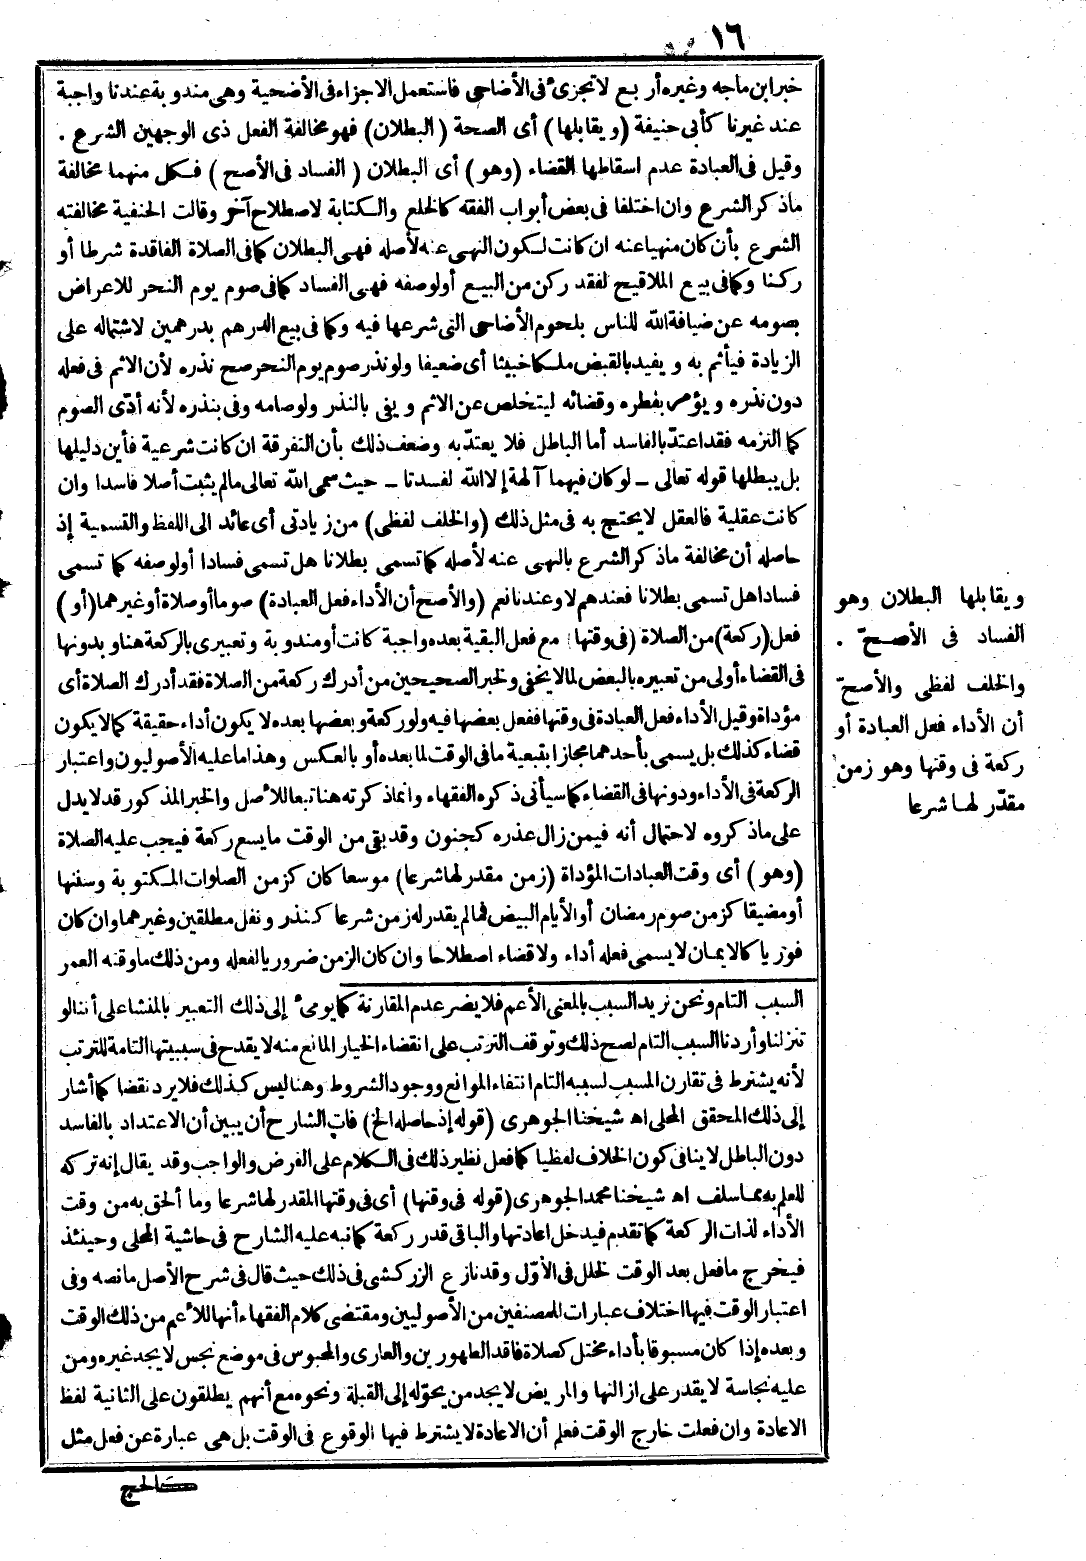 ١٦
خبر ابن ماجه وغيره أربع لا تجزئ فى الأضاحى فاستعمل الاجزاء فى الأضحية وهى مندوبة عندنا واجبة
عند غيرنا كأبى حنيفة (ويقابلها) أى الصحة (البطلان) فهو مخالفة الفعل ذى الوجهين الشرع .
وقيل فى العبادة عدم اسقاطها القضاء (وهو) أى البطلان (الفساد فى الأصح) فكل منهما مخالفة
ماذكر الشرع وان اختلفا فى بعض أبواب الفقه كالخلع والكتابة لاصطلاح آخر وقالت الحنفية مخالفته
الشرع بأن كان منهيا عنه ان كانت لكون النهى عنه لأصله فهى البطلان كما فى الصلاة الفاقدة شرطا أو
ركنا وكما فى بيع الملاقيح لفقد ركن من البيع أو لوصفه فهى الفساد كما فى صوم يوم النحر للاعراض
بصومه عن ضيافة الله للناس بلحوم الأضاحى التى شرعها فيه وكما فى بيع الدرهم بدرهمين لاشتماله على
الزيادة فيأثم به ويفيد بالقبض ملكا خبيثا أى ضعيفا ولو نذر صوم يوم النحر صح نذره لأن الاثم فى فعله
دون نذره ويؤمر بفطره وقضائه ليتخلص عن الاثم ويفى بالنذر ولو صامه وفى بنذره لأنه أدّى الصوم
كما التزمه فقد اعتدّ بالفاسد أما الباطل فلا يعتدّ به وضعف ذلك بأن التفرقة ان كانت شرعية فأين دليلها
بل يبطلها قوله تعالى ـ لو كان فيهما آلهة إلا الله لفسدتا ـ حيث سمى الله تعالى مالم يثبت أصلا فاسدا وان
كانت عقلية فالعقل لا يحتج به فى مثل ذلك (والخلف لفظى) من زيادتى أى عائد الى اللفظ والتسمية إذ
حاصله أن مخالفة ماذكر الشرع بالنهى عنه لأصله كما تسمى بطلانا هل تسمى فسادا أو لوصفه كما تسمى
فسادا هل تسمى بطلانا فعندهم لا وعندنا نعم (والأصح أن الأداء فعل العبادة) صوما أو صلاة أو غيرهما (أو)
فعل (ركعة) من الصلاة (فى وقتها) مع فعل البقية بعده واجبة كانت أو مندوبة وتعبيرى بالركعة هنا وبدونها
فى القضاء أولى من تعبيره بالبعض لما لا يخفى ولخبر الصحيحين من أدرك ركعة من الصلاة فقد أدرك الصلاة أى
مؤداة وقيل الأداء فعل العبادة فى وقتها ففعل بعضها فيه ولو ركعة وبعضها بعده لا يكون أداء حقيقة كما لا يكون
قضاء كذلك بل يسمى بأحدهما مجازا بتبعية ما فى الوقت لما بعده أو بالعكس وهذا ما عليه الأصوليون واعتبار
الركعة فى الأداء ودونها فى القضاء كما سيأتى ذكره الفقهاء وانما ذكرته هنا تبعا للأصل والخبر المذكور قد لا يدل
على ماذكروه لاحتمال أنه فيمن زال عذره كجنون وقد بقى من الوقت ما يسع ركعة فيجب عليه الصلاة
(وهو) أى وقت العبادات المؤداة (زمن مقدر لها شرعا) موسعا كان كزمن الصلوات المكتوبة وسننها
أو مضيقا كزمن صوم رمضان أو الأيام البيض فما لم يقدر له زمن شرعا كنذر ونفل مطلقين وغيرهما وان كان
فوريا كالايمان لا يسمى فعله أداء ولا قضاء اصطلاحا وان كان الزمن ضروريا لفعله ومن ذلك ما وقته العمر
ويقابلها البطلان وهو
الفساد فى الأصحّ .
والخلف لفظى والأصحّ
أن الأداء فعل العبادة أو
ركعة فى وقتها وهو زمن
مقدّر لها شرعا
السبب التام ونحن نريد السبب بالمعنى الأعم فلا يضر عدم المقارنة كما يومئ إلى ذلك التعبير بالمنشا على أننا لو
تنزلنا وأردنا السبب التام لصح ذلك وتوقف الترتب على انقضاء الخيار المانع منه لا يقدح فى سببيتها التامة للترتب
لأنه يشترط فى تقارن المسبب لسببه التام انتفاء الموانع ووجود الشروط وهنا ليس كذلك فلا يرد نقضا كما أشار
إلى ذلك المحقق المحلى اهـ شيخنا الجوهرى (قوله إذ حاصله الخ) فات الشارح أن يبين أن الاعتداد بالفاسد
دون الباطل لا ينافى كون الخلاف لفظيا كما فعل نظير ذلك فى الكلام على الفرض والواجب وقد يقال إنه تركه
للعلم به مما سلف اهـ شيخنا محمد الجوهرى (قوله فى وقتها) أى فى وقتها المقدر لها شرعا وما ألحق به من وقت
الأداء لذات الركعة كما تقدم فيدخل اعادتها والباقى قدر ركعة كما نبه عليه الشارح فى حاشية المحلى وحينئذ
فيخرج ما فعل بعد الوقت لخلل فى الأوّل وقد نازع الزركشى فى ذلك حيث قال فى شرح الأصل ما نصه وفى
اعتبار الوقت فيها اختلاف عبارات للمصنفين من الأصوليين ومقتضى كلام الفقهاء أنها للأعم من ذلك الوقت
وبعده إذا كان مسبوقا بأداء مختل كصلاة فاقد الطهورين والعارى والمحبوس فى موضع نجس لا يجد غيره ومن
عليه نجاسة لا يقدر على ازالتها والمريض لا يجد من يحوّله إلى القبلة ونحوه مع أنهم يطلقون على الثانية لفظ
الاعادة وان فعلت خارج الوقت فعلم أن الاعادة لا يشترط فيها الوقوع فى الوقت بل هى عبارة عن فعل مثل
كالحج